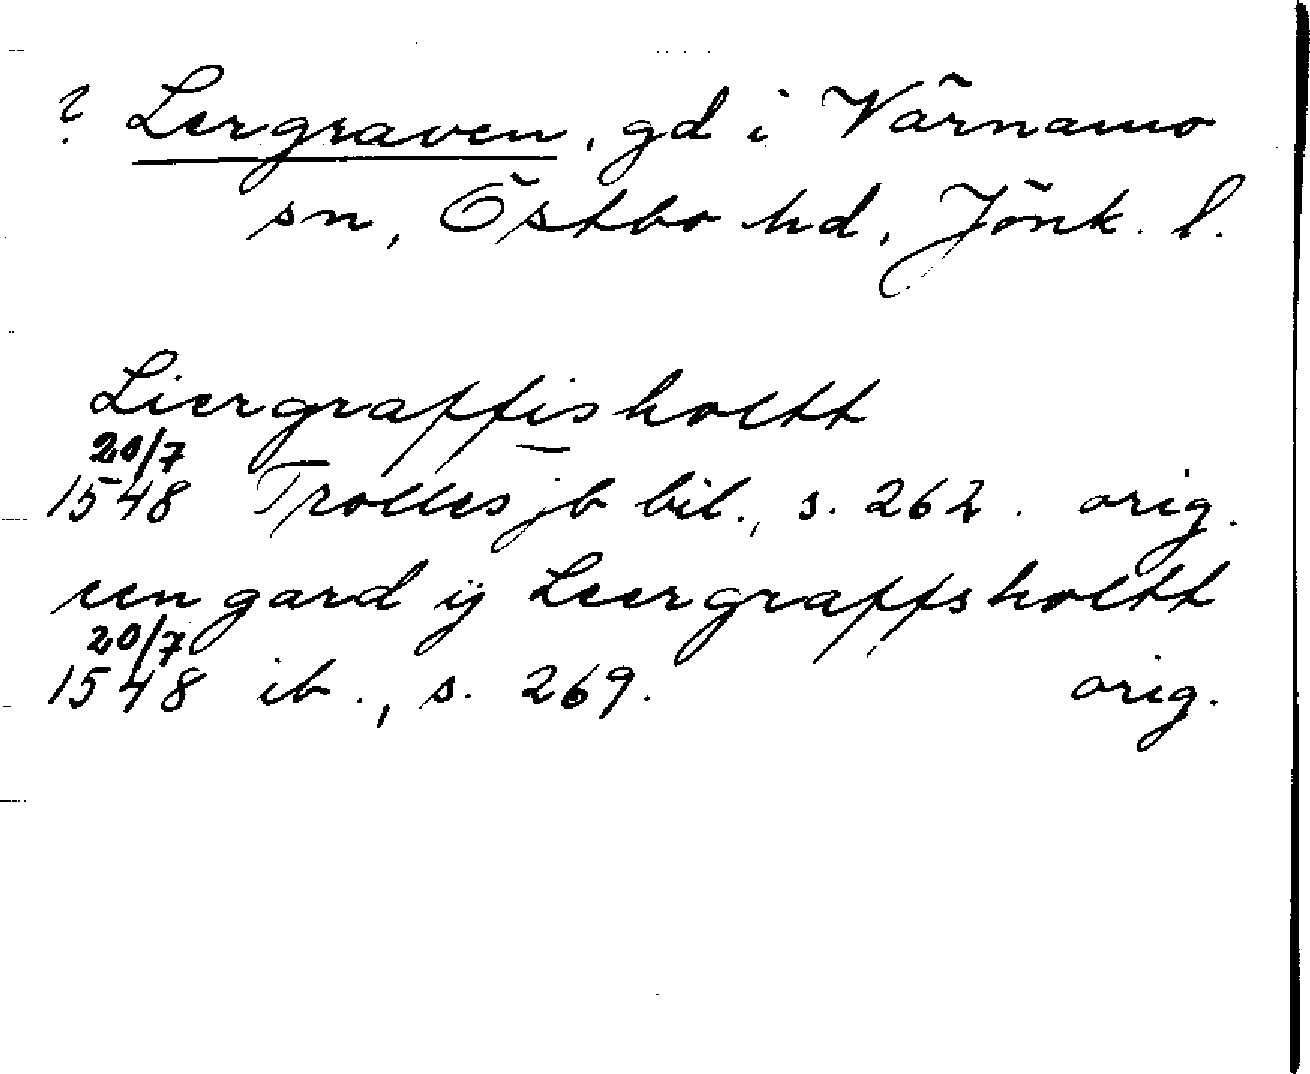 ? Lergraven, gd i Värnamo
sn, Östbo hd, Jönk. l.
Liergraffisholtt
20/7
1548 Trolles jb bil., s. 262. orig.
een gard ij Leergraffsholtt
20/7
1548 ib., s. 269. orig.